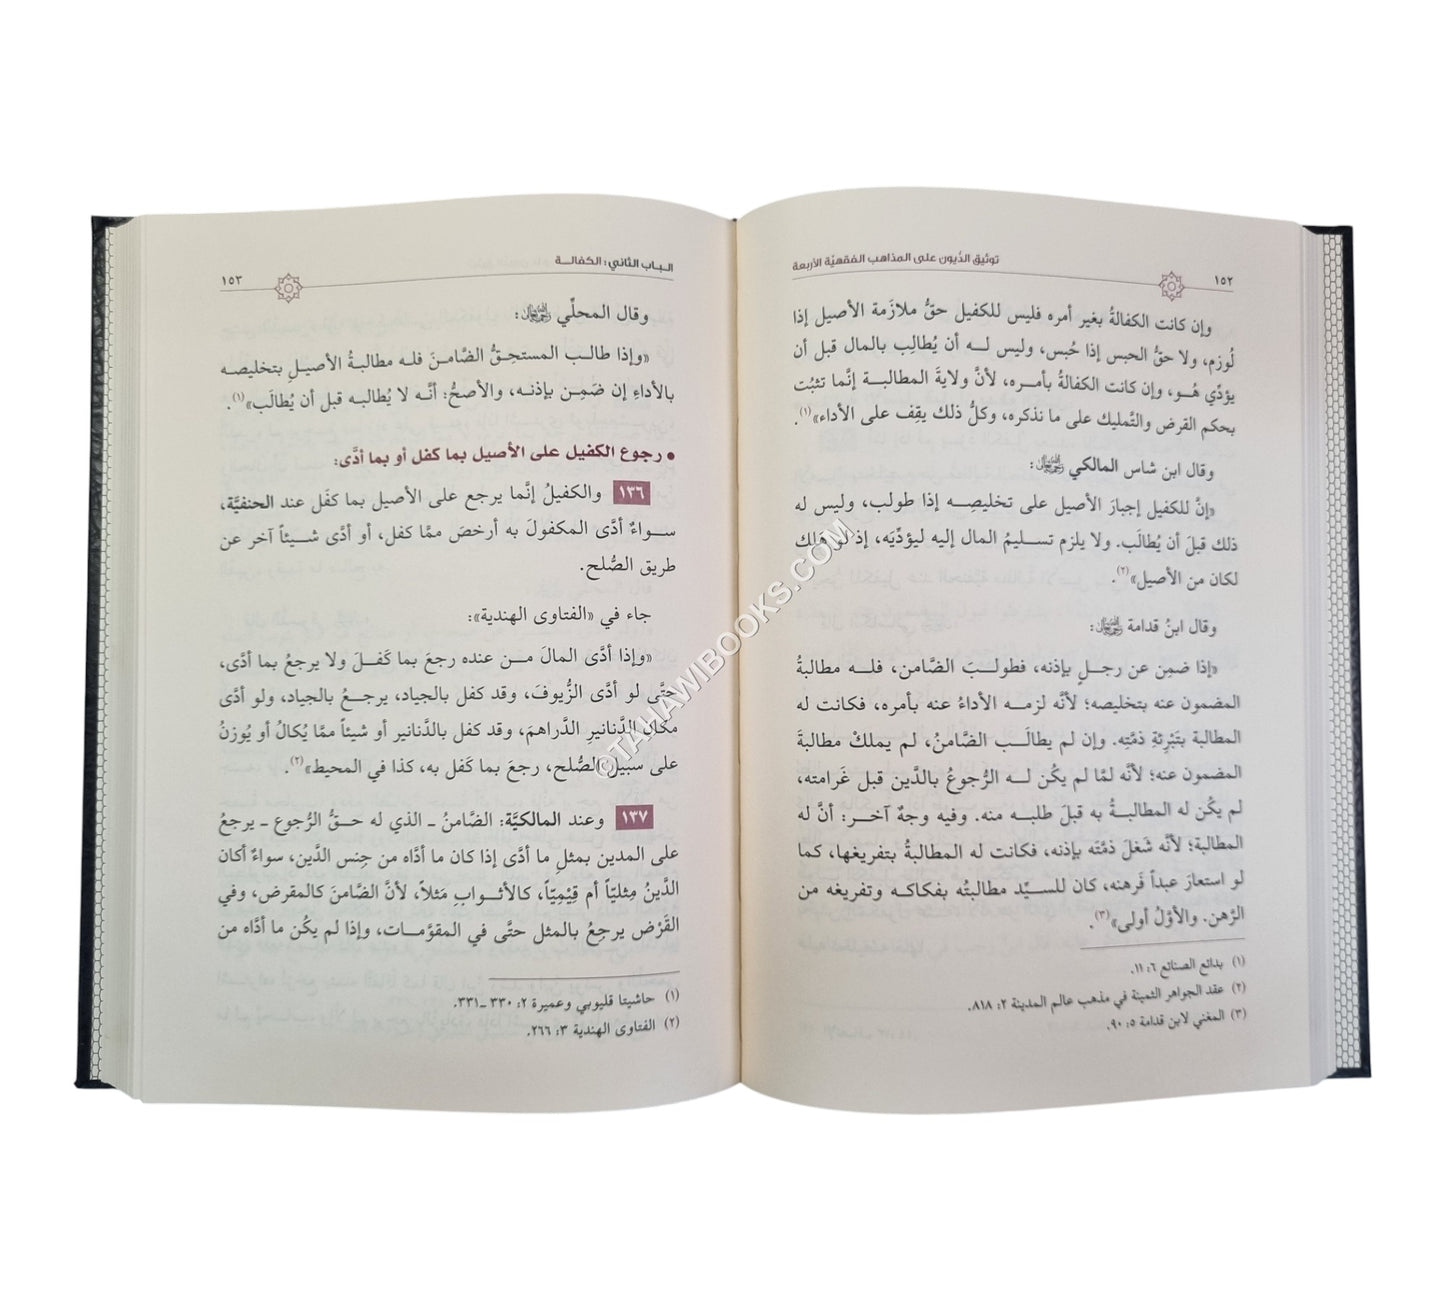 توثيق الدُّيون على المذاهب الفقهيَّة الأربعة
١٥٢
وإن كانت الكفالةُ بغير أمره فليس للكفيل حقُّ ملازَمة الأصيل إذا
لُوزم، ولا حقُّ الحبس إذا حُبس، وليس لــه أن يُطالِب بالمال قبل أن
يؤدِّي هُــو، وإن كانت الكفالةُ بأمـره، لأنَّ ولايةَ المطالبــة إنَّما تثبُت
بحكم القرض والتَّمليك على ما نذكره، وكلُّ ذلك يقِف على الأداء»(١).
وقال ابن شاس المالكي رحمه الله تعالى:
«إنَّ للكفيل إجبارَ الأصيل على تخليصِــه إذا طولب، وليس له
ذلك قبلَ أن يُطالَب. ولا يلزم تســليمُ المال إليه ليؤدِّيَه، إذ لو هلك
لكان من الأصيل»(٢).
وقال ابنُ قدامة رحمه الله تعالى:
«إذا ضمِن عن رجــلٍ بإذنه، فطولبَ الضَّامن، فلــه مطالبةُ
المضمون عنه بتخليصه؛ لأنَّه لزمــه الأداءُ عنه بأمره، فكانت له
المطالبة بتَبْرِئةِ ذمَّتِه. وإن لم يطالَــب الضَّامنُ، لم يملكْ مطالبةَ
المضمون عنه؛ لأنَّه لمَّا لم يكُن لــه الرُّجوعُ بالدَّين قبل غَرامته،
لم يكُن له المطالبــةُ به قبلَ طلبــه منه. وفيه وجهٌ آخــر: أنَّ له
المطالبة؛ لأنَّه شَغلَ ذمَّتَه بإذنه، فكانت له المطالبةُ بتفريغها، كما
لو استعارَ عبداً فَرهنه، كان للســيِّد مطالبتُه بفكاكــه وتفريغه من
الرَّهن. والأوَّلُ أولى»(٣).
(١) بدائع الصنائع ٦: ١١.
(٢) عقد الجواهر الثمينة في مذهب عالم المدينة ٢: ٨١٨.
(٣) المغني لابن قدامة ٥: ٩٠.
الـبـاب الثاني: الكفالــة
١٥٣
وقال المحلِّي رحمه الله تعالى:
«وإذا طالــب المستحــقُّ الضَّامــنَ فلــه مطالبـةُ الأصيــلِ بتخليصــه
بالأداءِ إن ضَمِــن بإذنــه، والأصحُّ: أنَّــه لا يُطالبــه قبل أن يُطالَب»(١).
• رجوع الكفيل على الأصيل بما كفل أو بما أدَّى:
١٣٦ والكفيلُ إنَّما يرجع على الأصيل بما كفَل عند الحنفيَّة،
ســواءٌ أدَّى المكفولَ به أرخصَ ممَّا كفل، أو أدَّى شــيئاً آخر عن
طريق الصُّلح.
جاء في «الفتاوى الهندية»:
«وإذا أدَّى المالَ مــن عنده رجعَ بما كَفــلَ ولا يرجعُ بما أدَّى،
حتَّى لو أدَّى الزُّيوفَ، وقد كفل بالجياد، يرجــعُ بالجياد، ولو أدَّى
مكان الدَّنانيرِ الدَّراهمَ، وقد كفل بالدَّنانير أو شيئاً ممَّا يُكالُ أو يُوزنُ
على سبيل الصُّلح، رجعَ بما كَفل به، كذا في المحيط»(٢).
١٣٧ وعند المالكيَّة: الضَّامنُ ـ الذي له حقُّ الرُّجوع ـ يرجعُ
على المدين بمثلِ ما أدَّى إذا كان ما أدَّاه من جنِس الدَّين، سواءٌ أكان
الدَّينُ مِثليّاً أم قِيْمِيّاً، كالأثــوابِ مَثلاً، لأنَّ الضَّامنَ كالمقرض، وفي
القَرْض يرجِعُ بالمثل حتَّى في المقوَّمــات، وإذَا لم يكُن ما أدَّاه من
(١) حاشيتا قليوبي وعميرة ٢: ٣٣٠ ـ ٣٣١.
(٢) الفتاوى الهندية ٣: ٢٦٦.
©TAHAWIBOOKS.COM